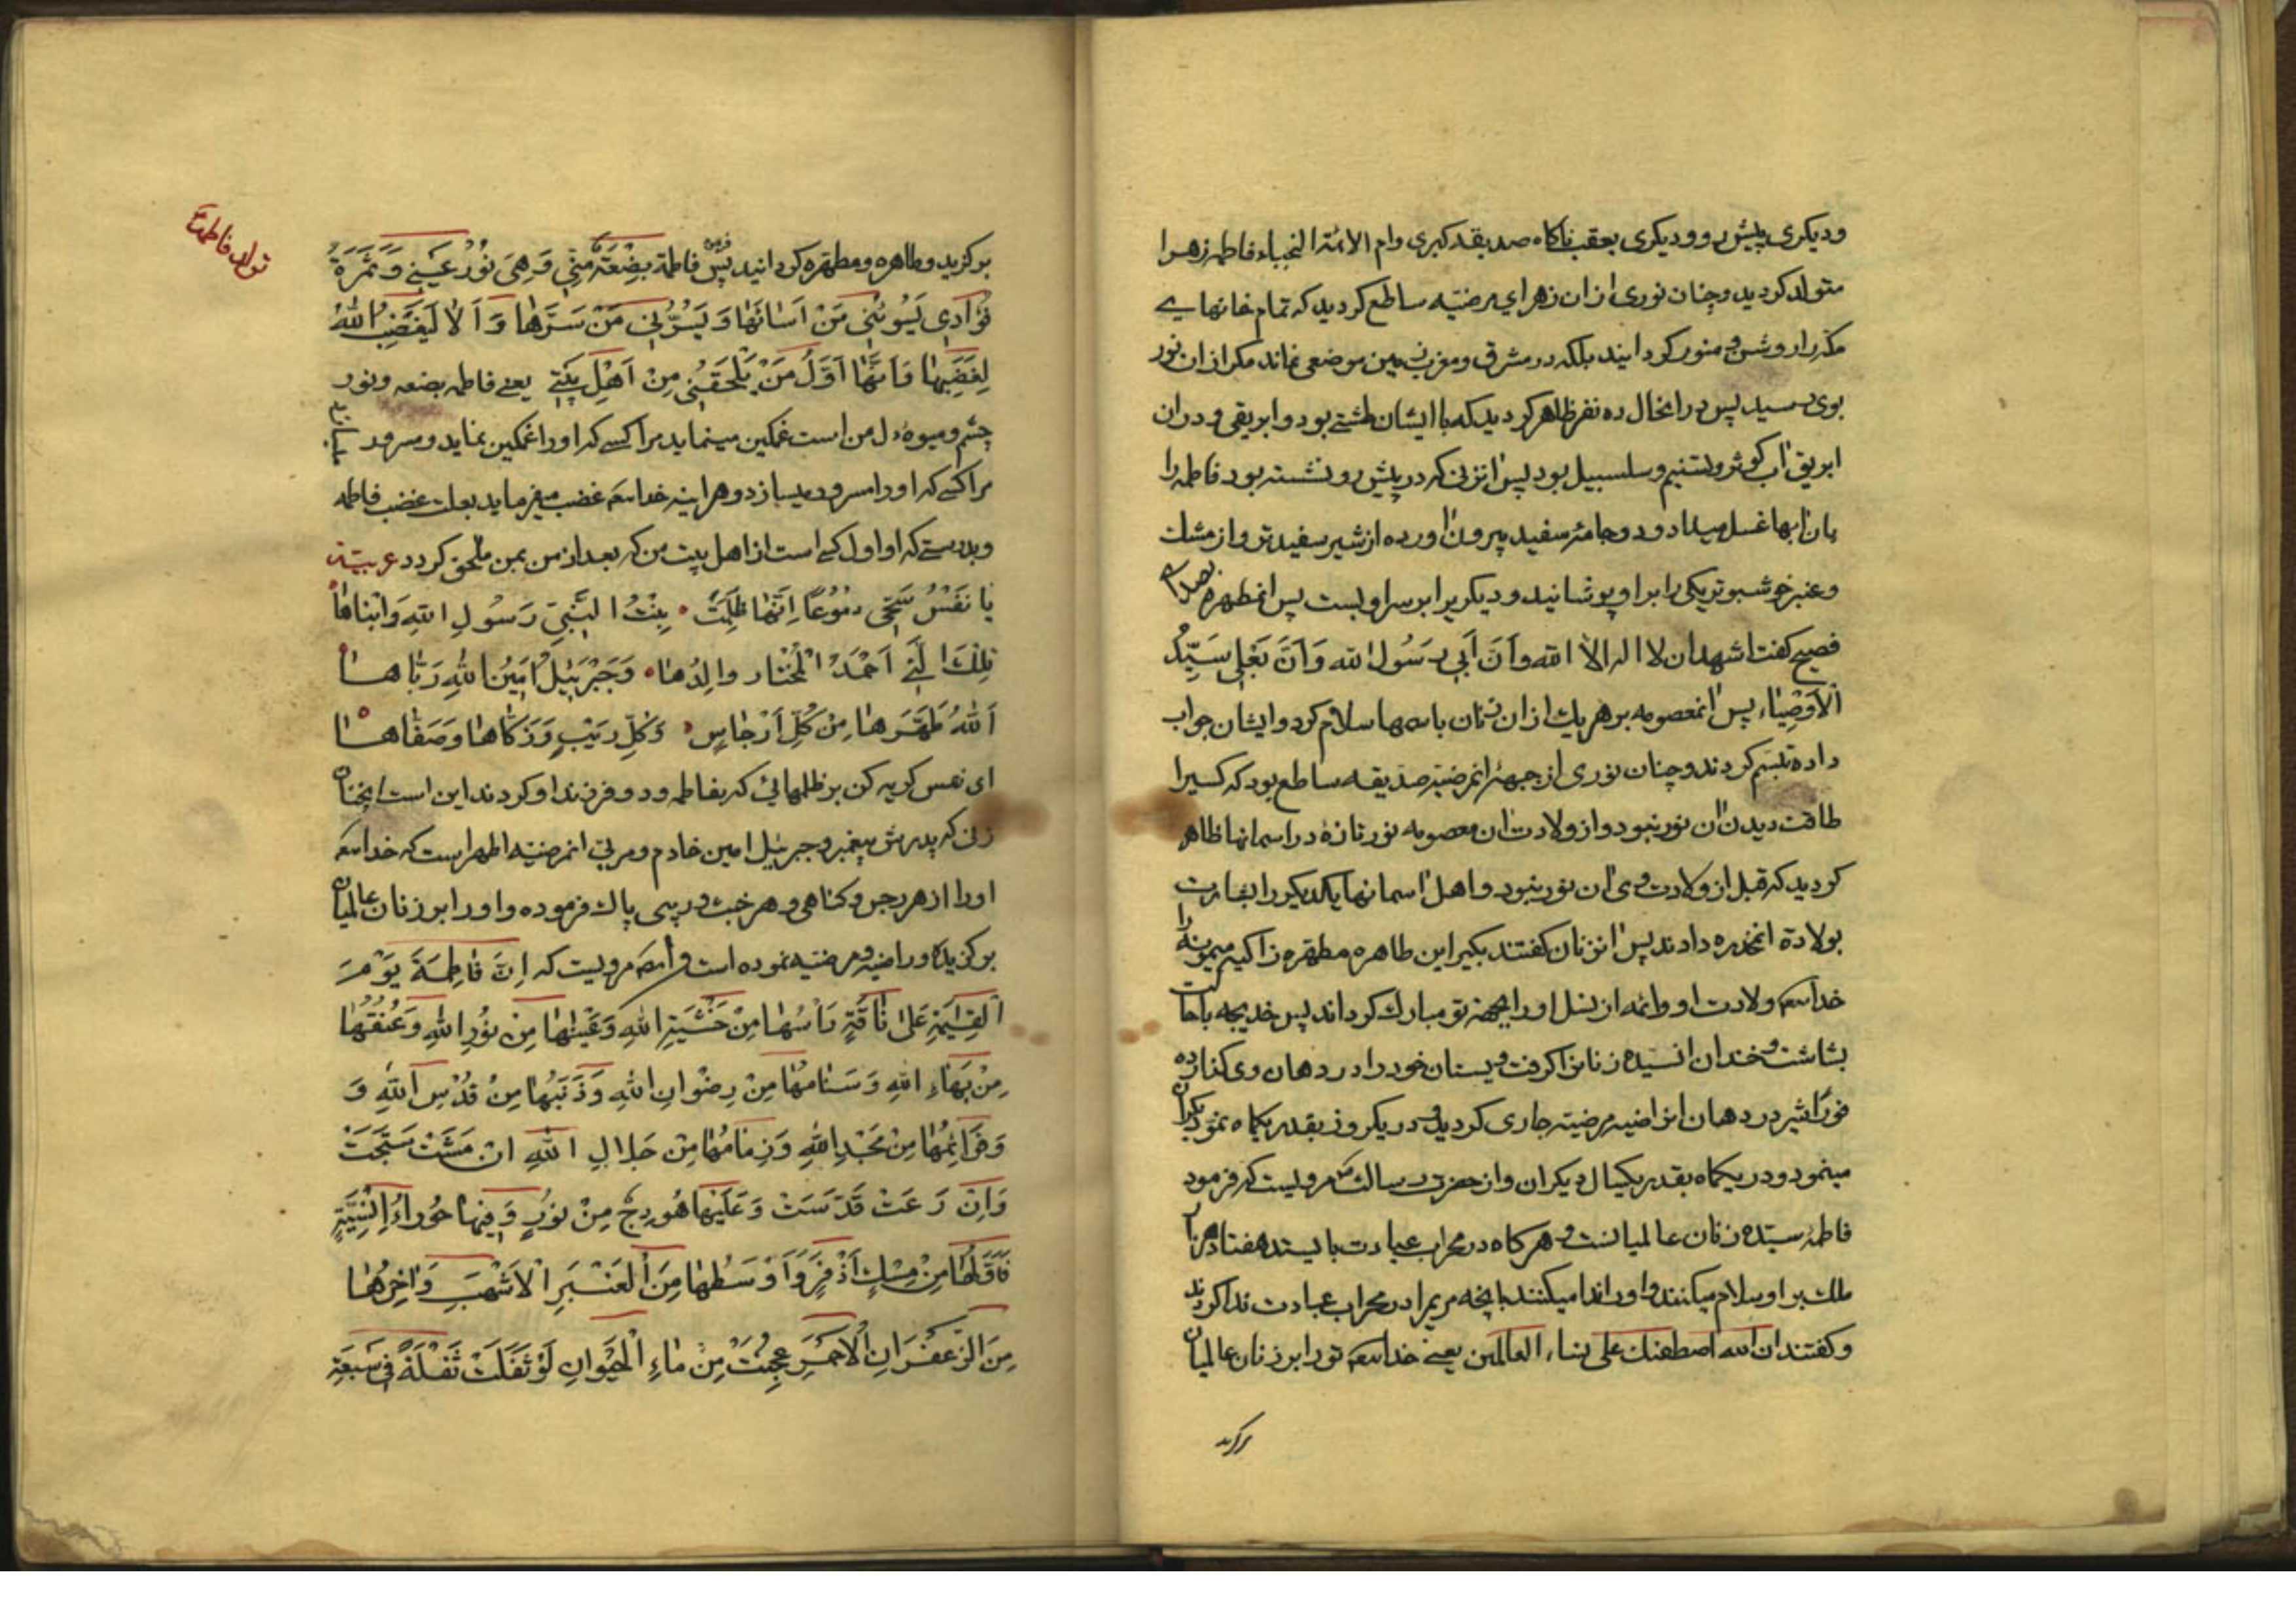 ودیکری پیش رو ودیکری بعقب ناکاه صدیقه کبری وام الائمة النجباء فاطمه زهرا
متولد کردید وچنان نوری ازان زهرای مرضیه ساطع کردید که تمام خانهای
مکه را روشن و منور کردانید بلکه در مشرق ومغرب زمین موضعی نماند مکر ازان نور
بوی رسید پس درانحال ده نفر ظاهر کردید که با ایشان طشتی بود وابریقی ودران
ابریق اب کوثر وتسنیم وسلسبیل بود پس انزنی که در پیش رو نشسته بود فاطمه را
بان ابها غسل میداد ودو جامه سفید بیرون اورده از شیر سفیدتر واز مشک
وعنبر خوشبوتر یکی را بر او پوشانید ودیکریرا بر سر او بست پس انمطهره
فصیح کفت اشهد ان لا اله الا الله وَاَنَّ اَبی رَسُولُ الله وَاَنَّ بَعْلی سَیِّدُ
الْاَوْصِیاء پس انمعصومه بر هریک ازان زنان باسمها سلام کرد وایشان جواب
داده تبسم کردند وچنان نوری از جبهه انمرضیه صدیقه ساطع بود که کسیرا
طاقت دیدن ان نور نبود واز ولادت ان معصومه نور تازهٔ در اسمانها ظاهر
کردید که قبل از ولادت وی ان نور نبود واهل اسمانها یکدیکر را بشارت
بولادة انمخدره دادند پس انزنان کفتند بکیر این طاهره مطهره زاکیه میمونه را
خدا ولادت او وائمه از نسل او را بجهة تو مبارک کرداند پس خدیجه
بشاشت وخندان انسیده زنانرا کرفت وپستان خود را در دهان وی کذارده
فورًا شیر در دهان ان راضیه مرضیه جاری کردید ودر یکروز بقدر یکماه نمو دیکران
مینمود ودر یکماه بقدر یکسال دیکران واز حضرت رسالت مرویست که فرمود
فاطمه سیده زنان عالمیانست وهرکاه در محراب عبادت بایستد هفتاد هزار
ملک بر او سلام میکنند واو را ندا میکنند بانچه مریم را در محراب عبادت ندا کردند
وکفتند ان الله اصطفک علی نساء العالمین یعنی خدا تو را بر زنان عالمیان
برکزید
تولد فاطمه
برکزید وطاهره ومطهره کردانید پس فرمود فاطمة بِضْعَةٌ مِنّی وَهِیَ نُورُ عَیْنی وَثَمَرَةُ
فُؤادی یَسُوئُنی مَنْ اَسائَها وَیَسُرُّنی مَنْ سَرَّها وَاَلا لَیَغْضِبُ اللهُ
لِغَضَبِها وَاَنَّها اَوَّلُ مَنْ یَلْحَقُنی مِنْ اَهْلِ بَیْتی یعنی فاطمه بضعه ونور
چشم ومیوه دل من است غمکین مینماید مرا کسی که او را غمکین نماید ومسرور
مرا کسی که او را مسرور میسازد وهراینه خدا غضب میفرماید بعلت غضب فاطمه
وبدرستی که او اول کسی است از اهل بیت من که بعد از من بمن ملحق کردد عربیة
یا نَفْسُ سَحّی دمُوُعًا اِنَّها ظُلِمَتْ بِنْتُ النَّبیِّ رَسُولِ اللهِ وَابْناها
تِلْکَ الَّتی اَحْمَدُ الْمُخْتار والِدُها وَجَبْرَئیلُ اَمینُ اللهِ رَبّاها
اَللهُ طَهَّرَها مِنْ کُلِّ اَرْجاسٍ وَکُلِّ رَیْبٍ وَزَکّاها وَصَفّاها
ای نفس کریه کن بر ظلمهائی که بفاطمه ودو فرزند او کردند این است انچنان
زنی که پدرش پیغمبر وجبرئیل امین خادم ومربی انمرضیه اطهر است که خدا
او را از هر رجس وکناهی وهر خبث وریبی پاک فرموده واو را بر زنان عالمیان
برکزیده وراضیه ومرضیه نموده است مرویست که اِنَّ فاطِمَةَ یَوْمَ
الْقِیمَةِ عَلی ناقَةٍ رَاْسُها مِنْ خَشْیَةِ اللهِ وَعَیْنُها مِنْ نُورِ اللهِ وَعُنُقُها
مِنْ بَهاءِ اللهِ وَسَنامُها مِنْ رِضْوانِ اللهِ وَذَنَبُها مِنْ قُدْسِ اللهِ وَ
وَقَوائِمُها مِنْ مَجْدِ اللهِ وَزِمامُها مِنْ جَلالِ اللهِ اِنْ مَشَتْ سَبَّحَتْ
وَاِنْ رَعَتْ قَدَّسَتْ وَعَلَیْها هُودِجٌ مِنْ نُورٍ وَفیها حُوراءُ اِنْسِیَّةٍ
فَاَوَّلُها مِنْ مِسْکٍ اَذْفَرٍ وَاَوْسَطُها مِنَ الْعَنْبَرِ الْاَشْهَبِ وَاخِرُها
مِنَ الزَّعْفَرانِ الْاَحْمَرِ عُجِنَتْ مِنْ ماءِ الْحَیَوانِ لَوْ تَفَلَتْ تَفْلَةً فی سَبْعَةِ